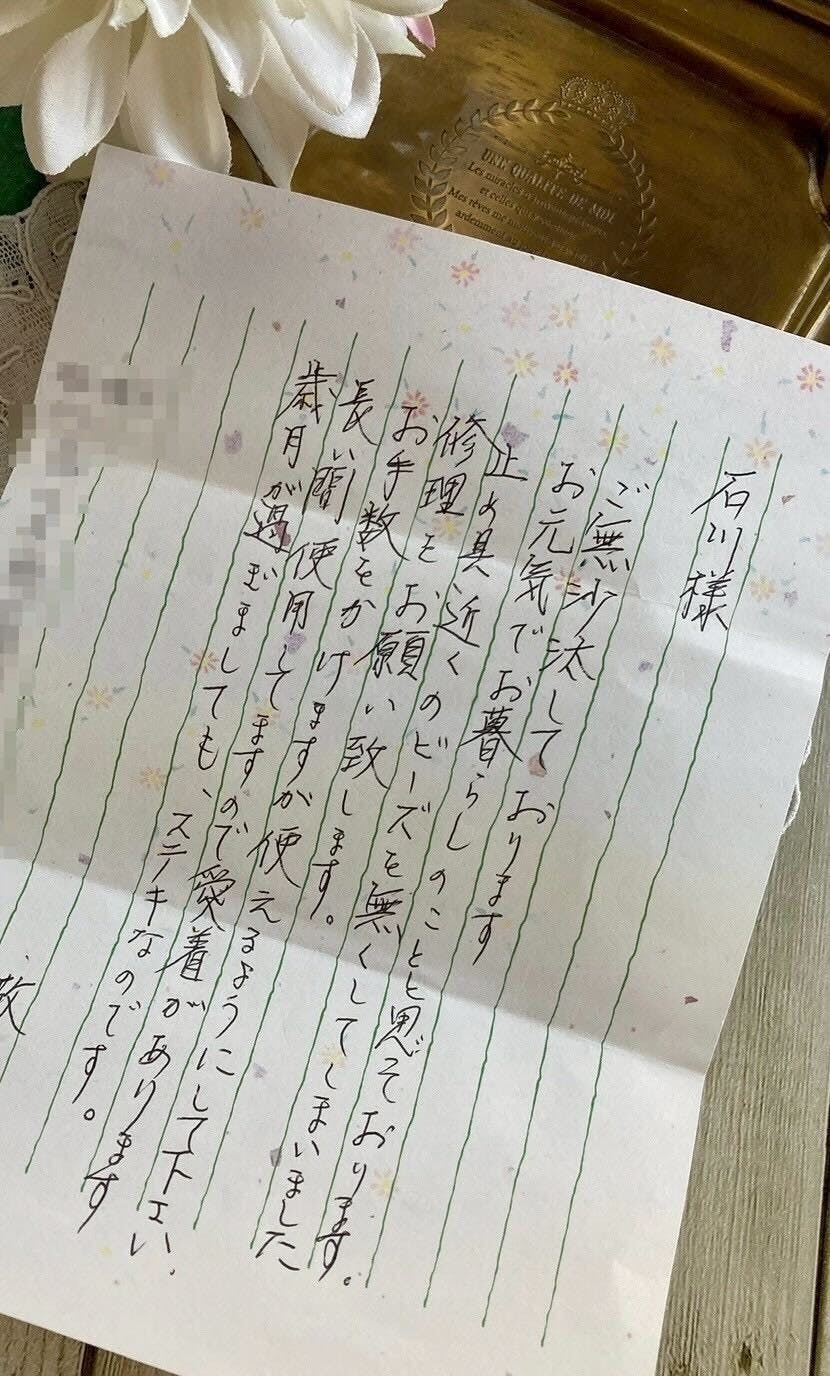 UNE QUALITE DE MOI
Les miracles
et celles
Mes rêves me
ardemment
石川様
ご無沙汰しております
お元気でお暮らしのことと思ております。
止め具近くのビーズを無くしてしまいました
修理をお願い致します。
お手数をかけますが使えるようにして下さい.
長い間使用してますので愛着があります
歳月が過ぎましても、ステキなのです。